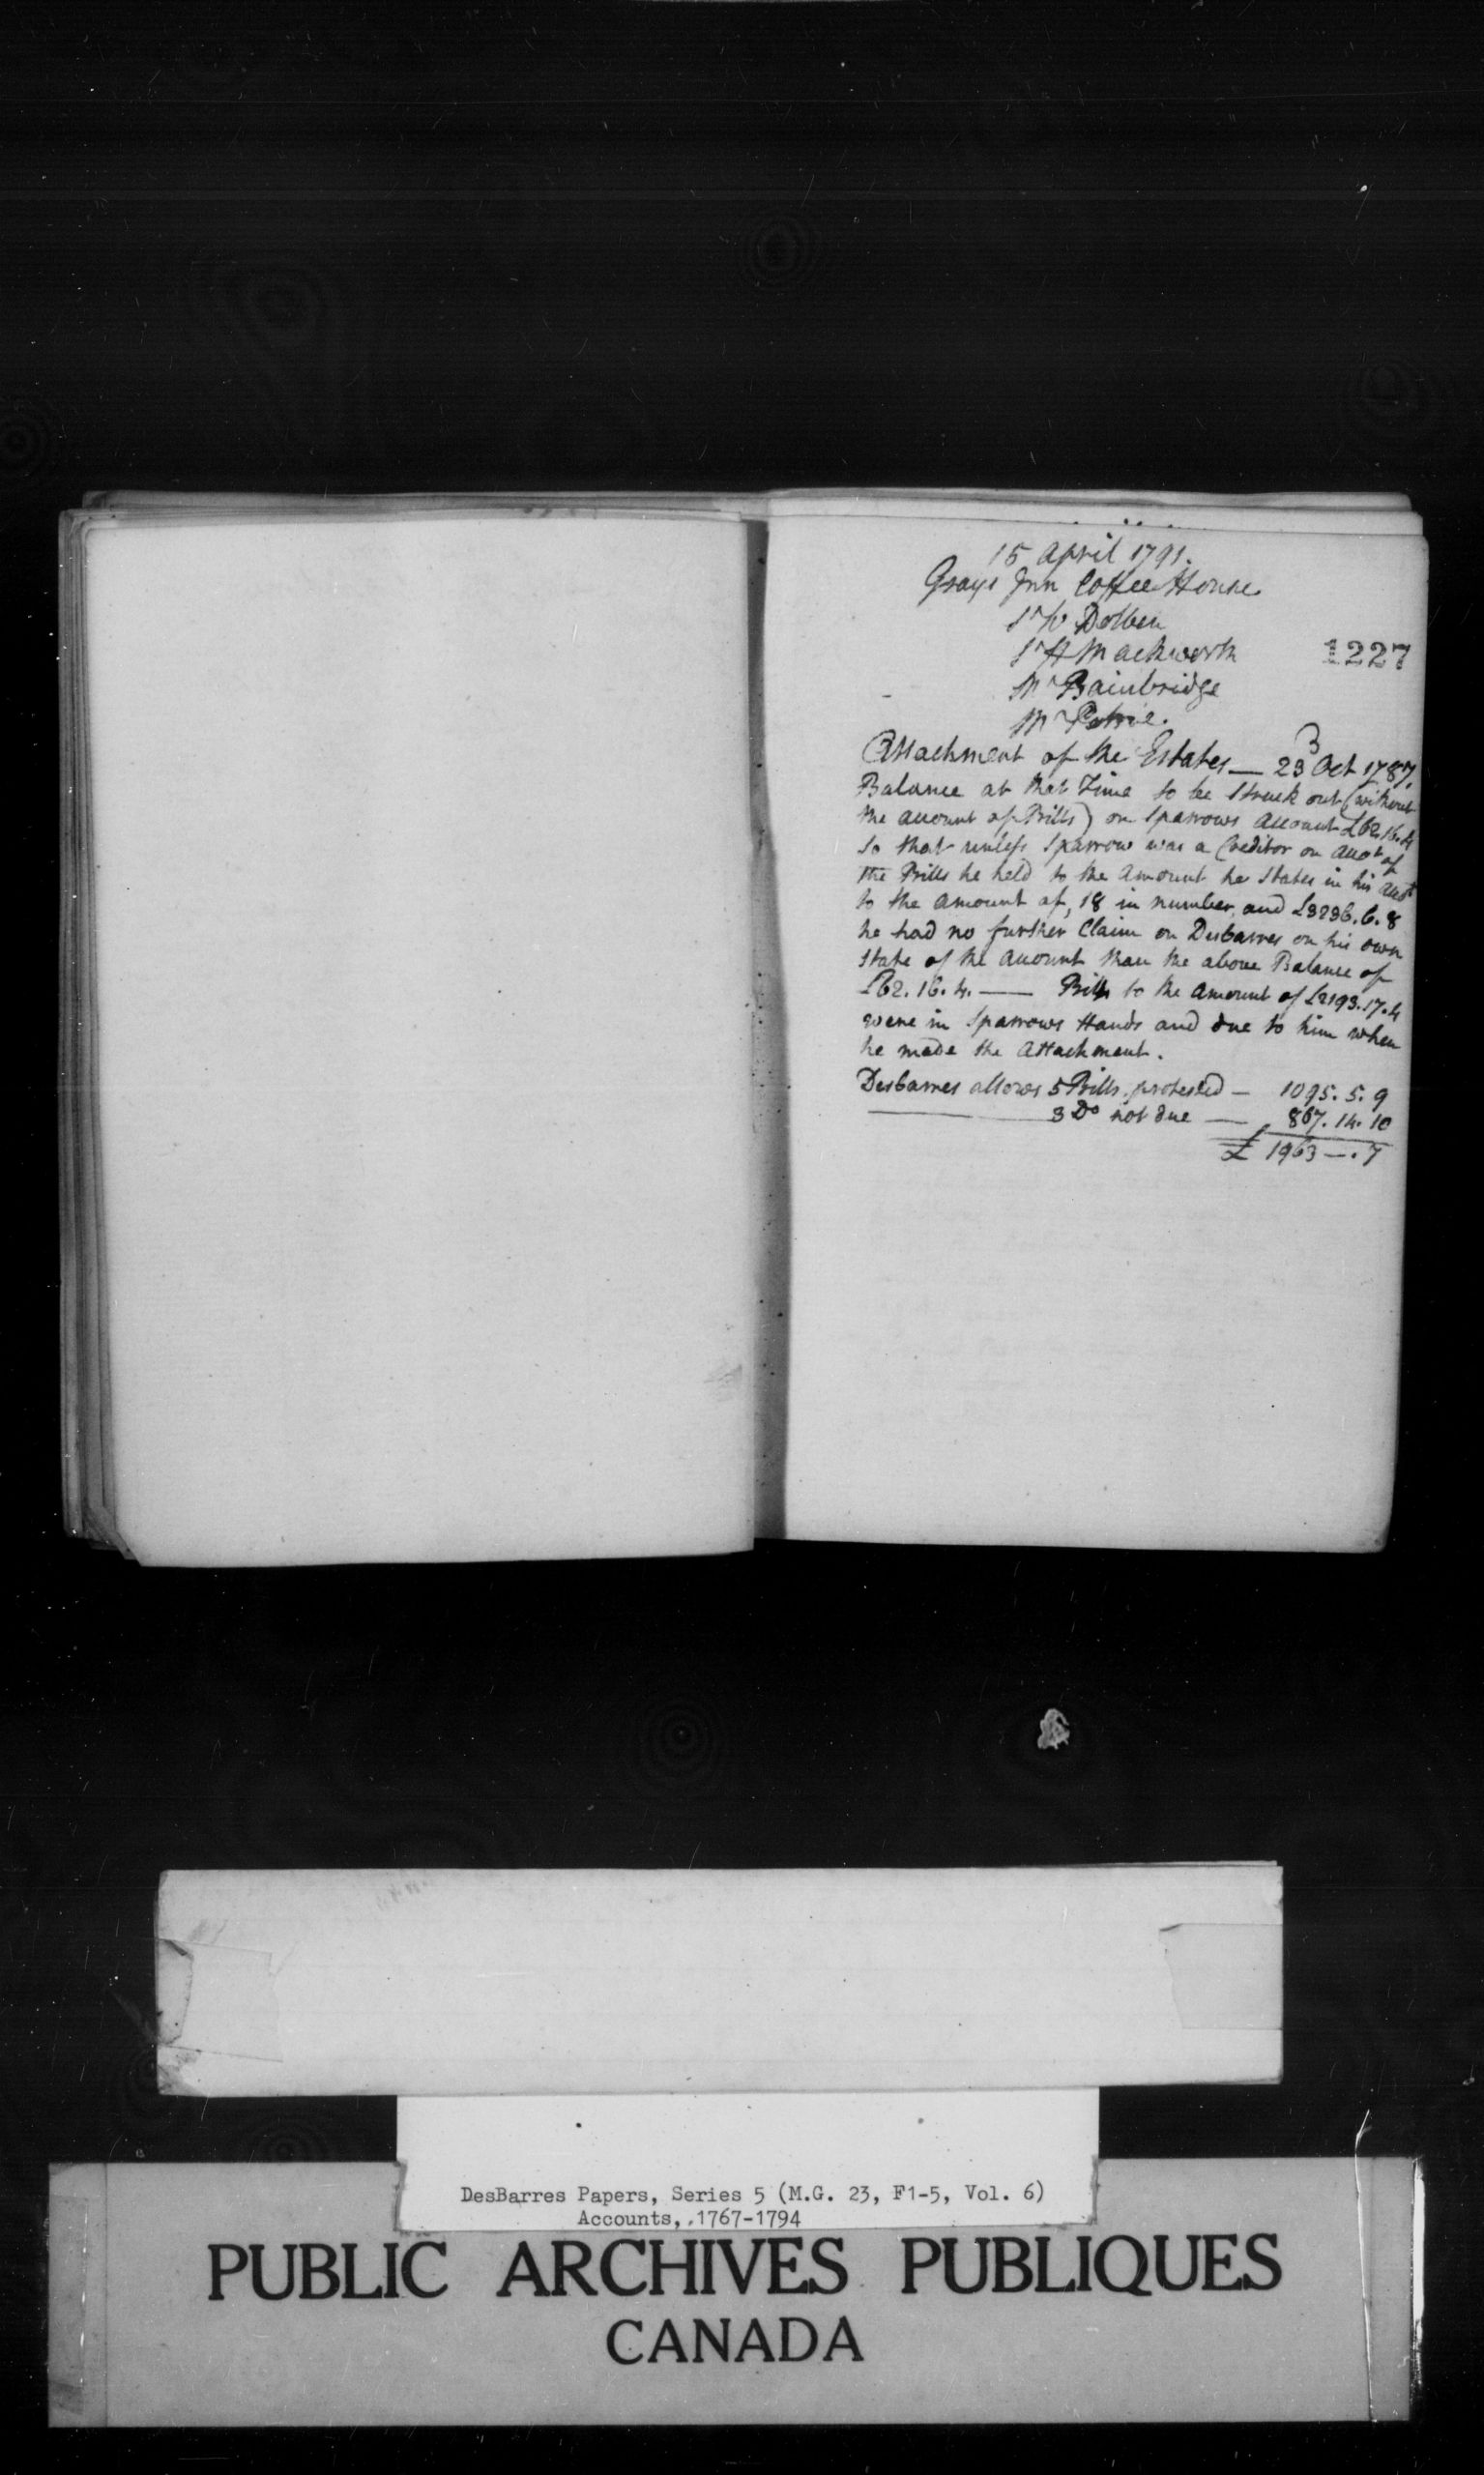 15 April 1791.
Grays Inn Coffee House
Sr W Dolben
1227
Sr H Mackworth
Mr Bainbridge
Mr Petrie.
3
Attachment of the Estates — 23 Oct 1787.
Balance at that Time to be Struck out (without
the account of Bills) on Sparrows Account £62.16.4
So that unless Sparrow was a Creditor on Acct of
the Bills he held to the Amount he States in his Acct
to the Amount of, 18 in number, and £3236.6.8
he had no further Claim on Desbarres on his own
State of the Account than the above Balance of
£62.16.4. — Bills to the Amount of £2193.17.4
were in Sparrows Hands and due to him when
he made the Attachment.
Desbarres allows 5 Bills protested — 1095.5.9
— 3 Do not due — 867.14.10
£ 1963 —.7
DesBarres Papers, Series 5 (M.G. 23, F1-5, Vol. 6)
Accounts, 1767-1794
PUBLIC ARCHIVES PUBLIQUES
CANADA